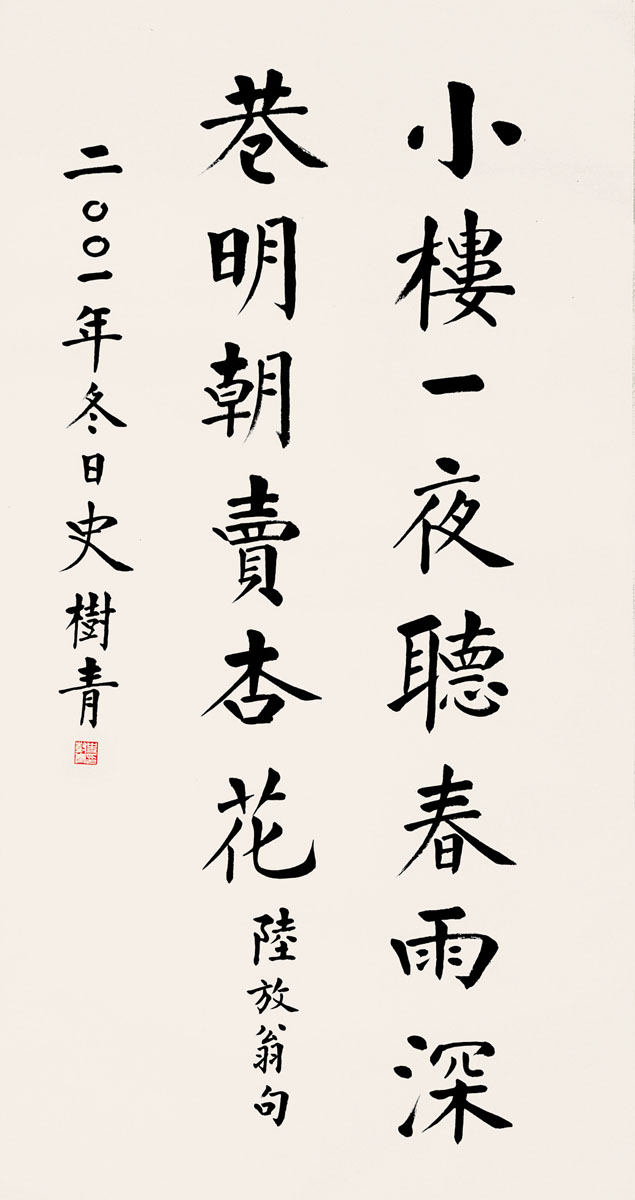 小樓一夜聽春雨深
巷明朝賣杏花
陸放翁句
二〇〇一年冬日史樹青